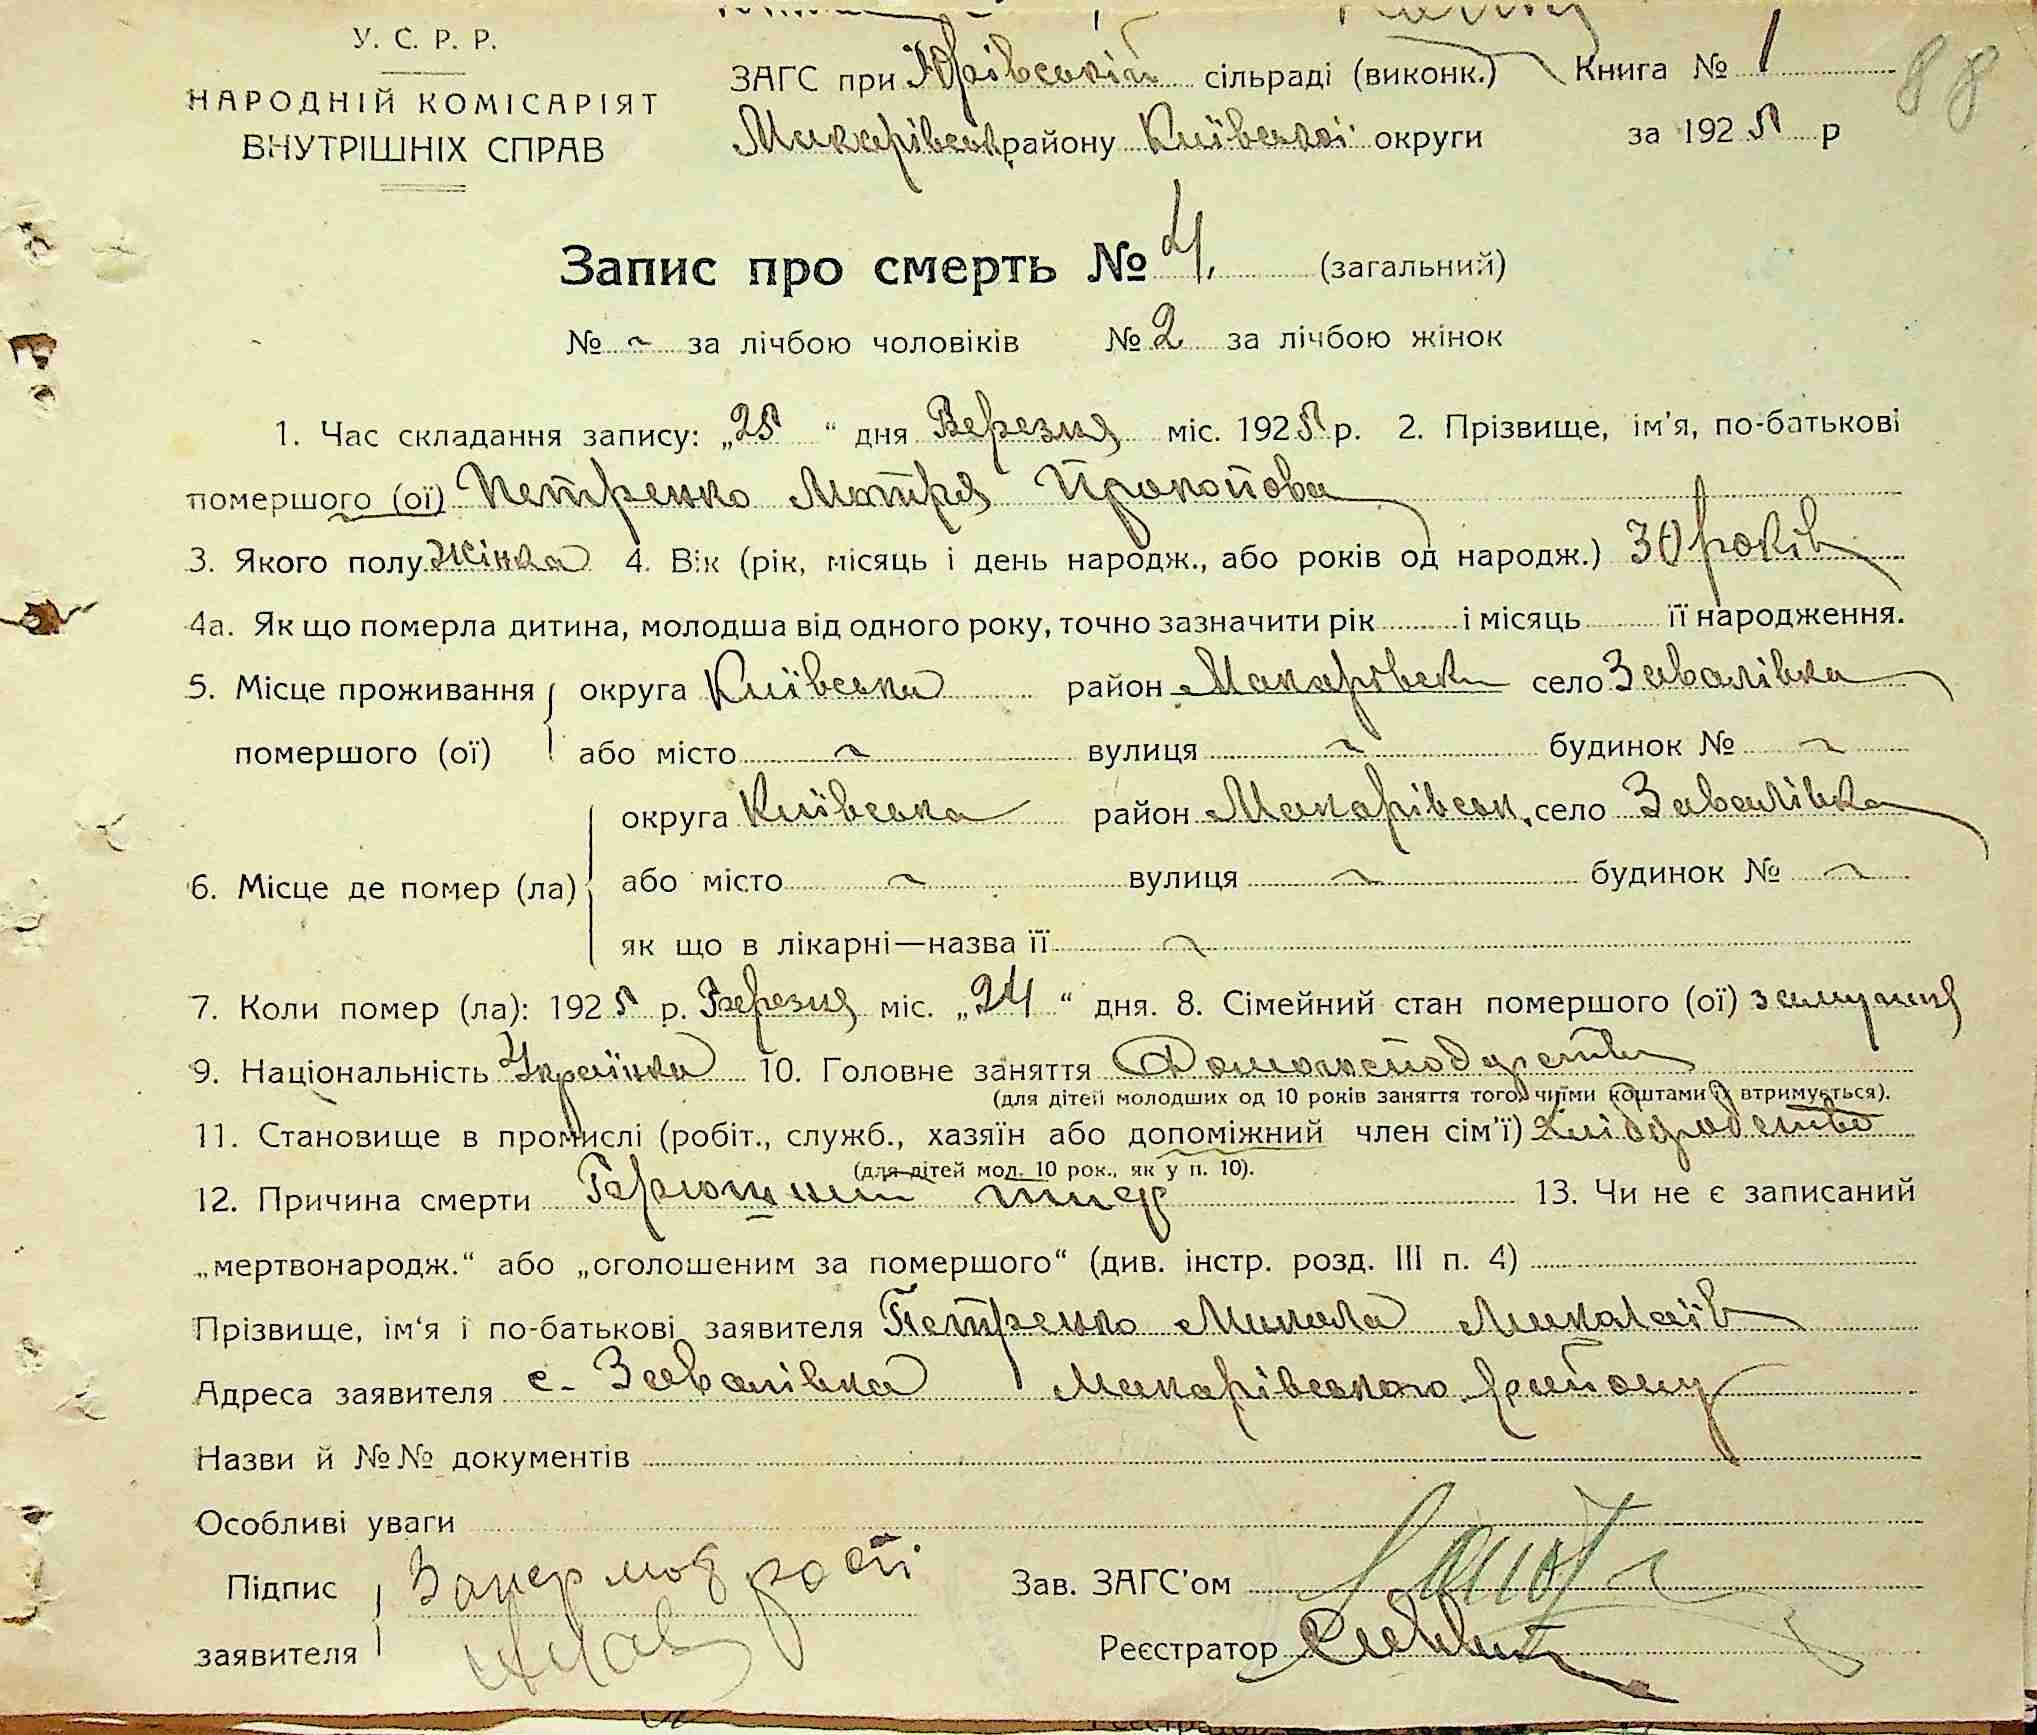 У. С. Р. Р.
НАРОДНІЙ КОМІСАРІЯТ
ВНУТРІШНІХ СПРАВ
ЗАГС при Юрівській сільраді (виконк.) Книга № 1 88
Макарівськ району Київської округи за 1925 р
Запис про смерть № 4. (загальний)
№ ~ за лічбою чоловіків № 2 за лічбою жінок
1. Час складання запису: „25“ дня Березня міс. 1925 р. 2. Прізвище, ім'я, по-батькові
помершого (ої) Петренко Мотря Прокопова
3. Якого полу Жінка 4. Вік (рік, місяць і день народж., або років од народж.) 30 років
4а. Як що померла дитина, молодша від одного року, точно зазначити рік і місяць її народження.
5. Місце проживання округа Київська район Макарівськ село Завалівка
помершого (ої) або місто ~ вулиця ~ будинок № ~
округа Київська район Макарівськ. село Завалівка
6. Місце де помер (ла) або місто ~ вулиця ~ будинок № ~
як що в лікарні—назва її ~
7. Коли помер (ла): 1925 р. Березня міс. „24“ дня. 8. Сімейний стан помершого (ої) замужня
9. Національність Українка 10. Головне заняття Домогосподарство
(для дітей молодших од 10 років заняття того, чиїми коштами їх втримується).
11. Становище в промислі (робіт., служб., хазяїн або допоміжний член сім'ї) Хлібородство
(для дітей мол. 10 рок., як у п. 10).
12. Причина смерти Брюшний тиф 13. Чи не є записаний
„мертвонародж.“ або „оголошеним за помершого“ (див. інстр. розд. III п. 4)
Прізвище, ім'я і по-батькові заявителя Петренко Микола Миколаїв
Адреса заявителя с. Завалівка Макарівського району
Назви й №№ документів
Особливі уваги
Підпис
заявителя
Зав. ЗАГС'ом
Реєстратор